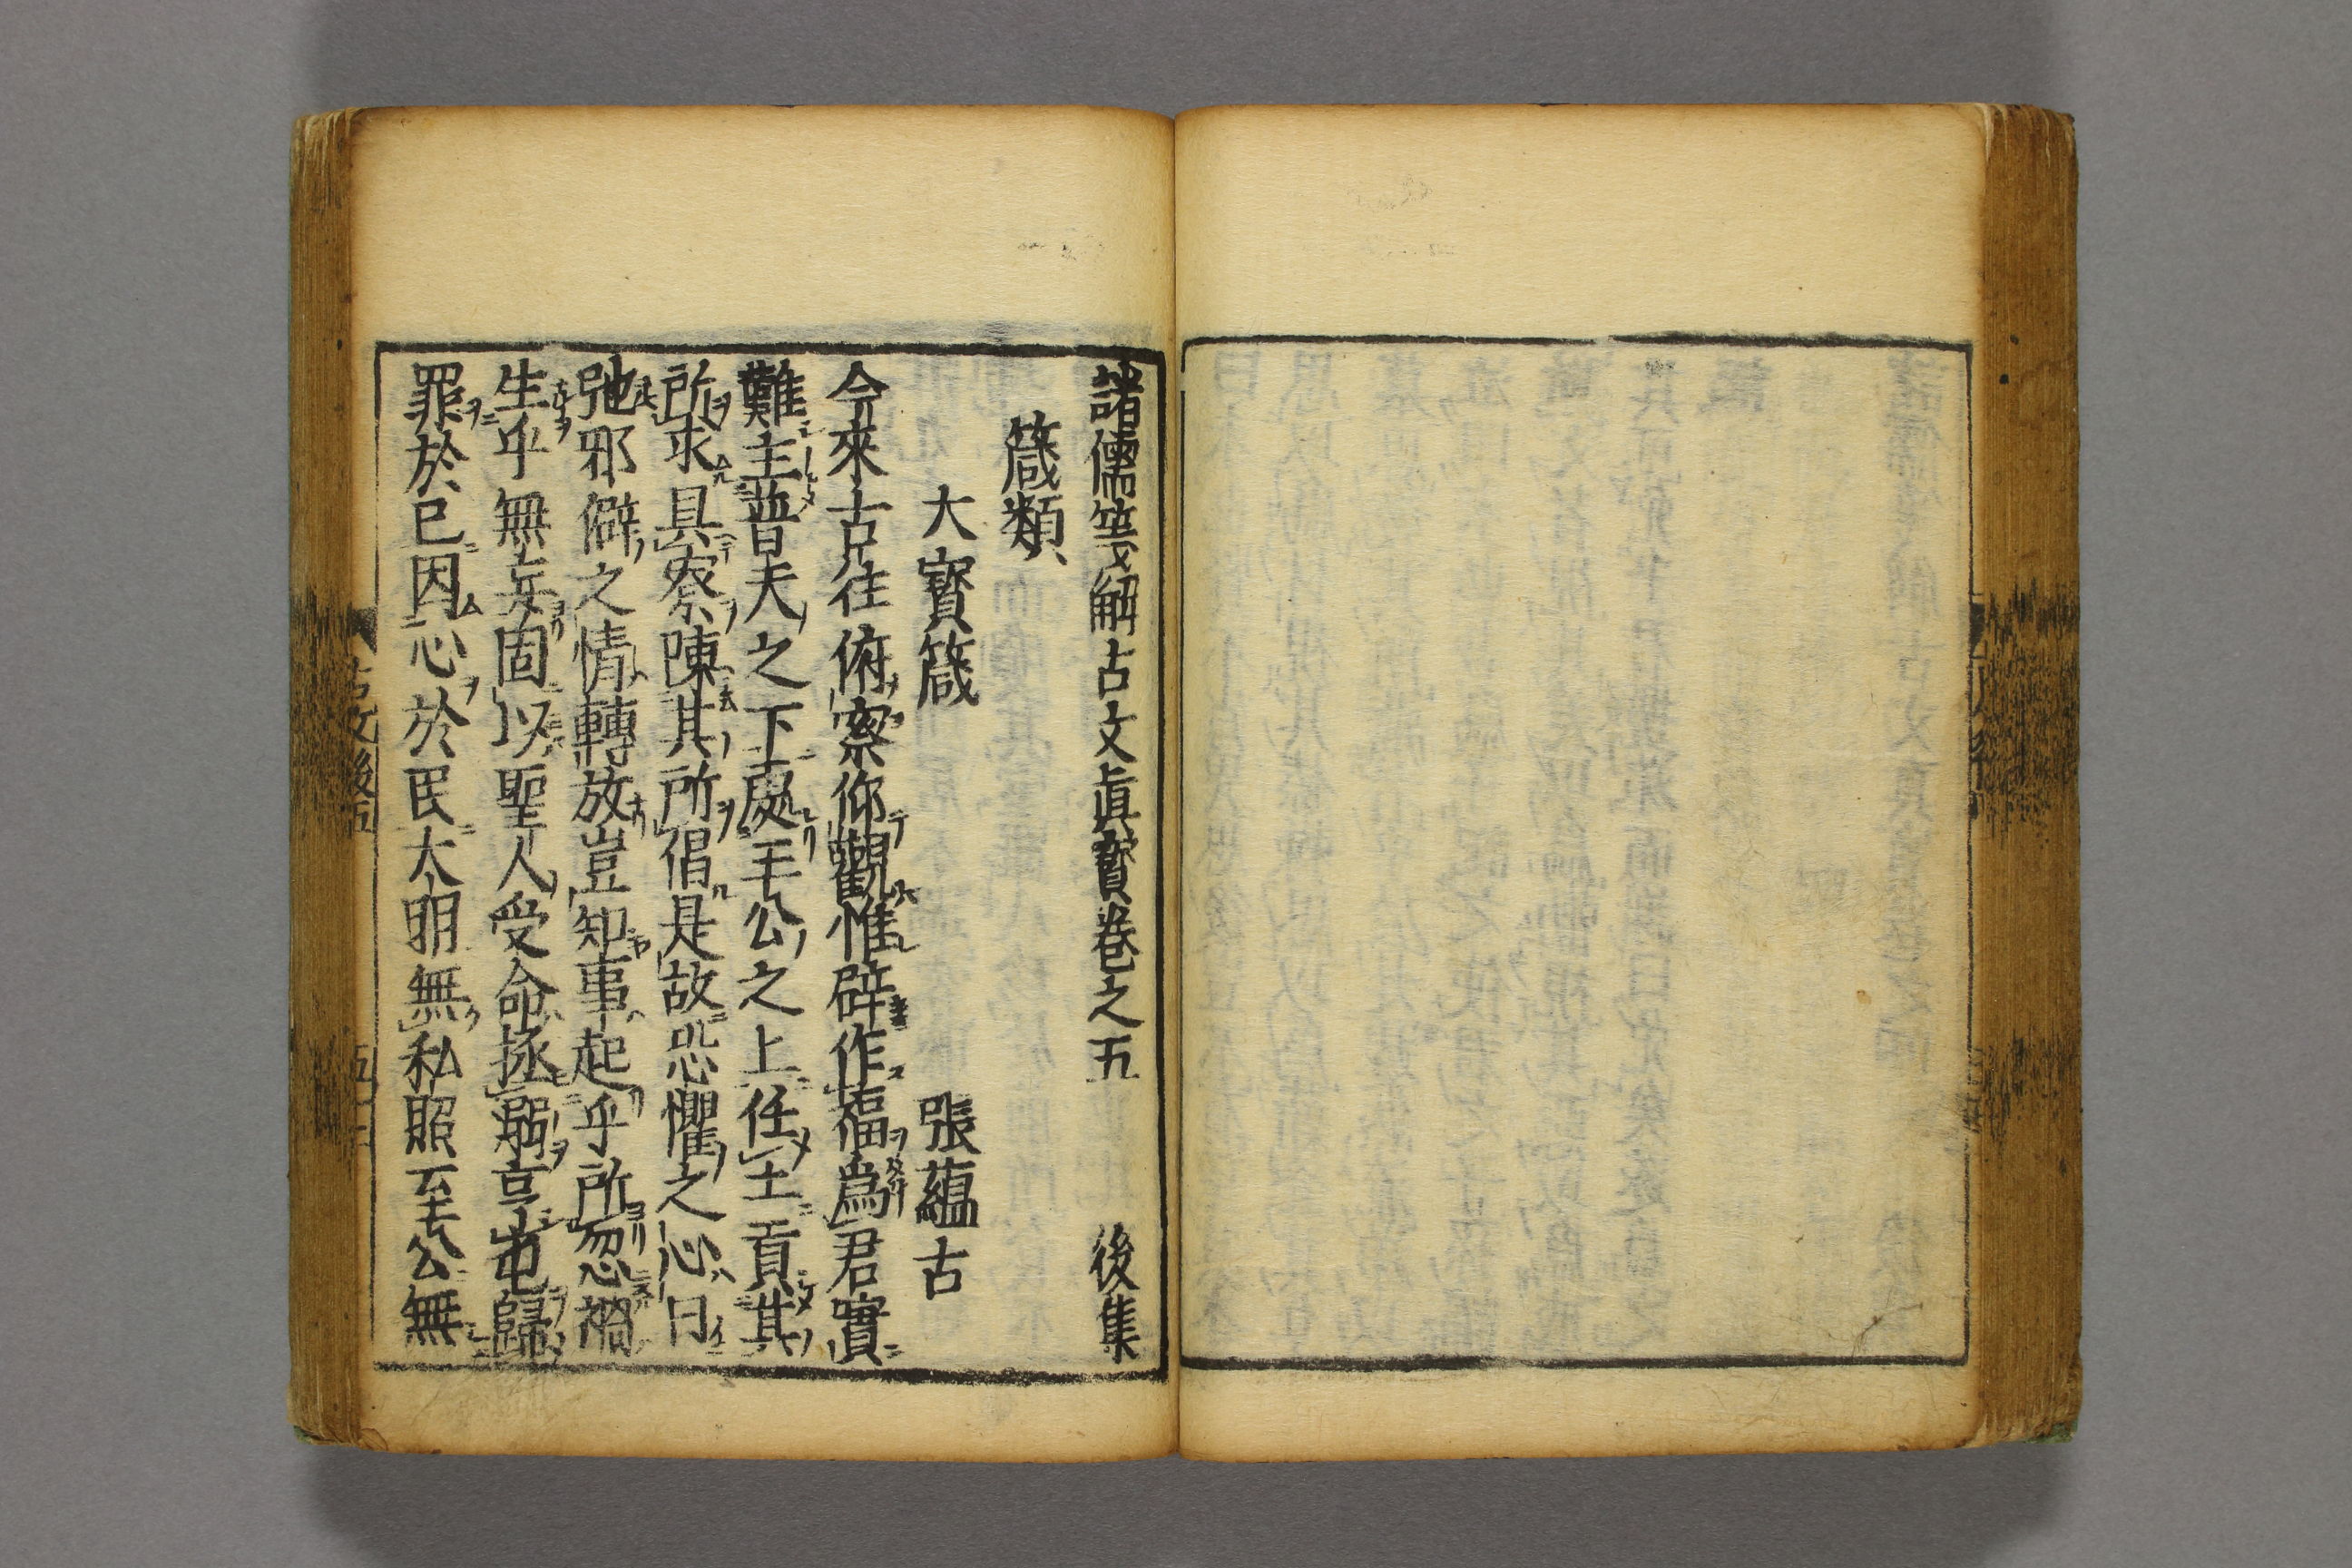 諸儒箋解古文眞寳卷之五 後集
箴類
大寳箴 張蘊古
今來古往俯察仰觀惟辟作福爲君實
難主普天之下處王公之上任土貢其
所求具寮陳其所倡是故恐懼之心日
弛邪僻之情轉放豈知事起乎所忽禍
生乎無妄固以聖人受命拯溺亨屯歸
罪於已因心於民大明無私照至公無
古文後五